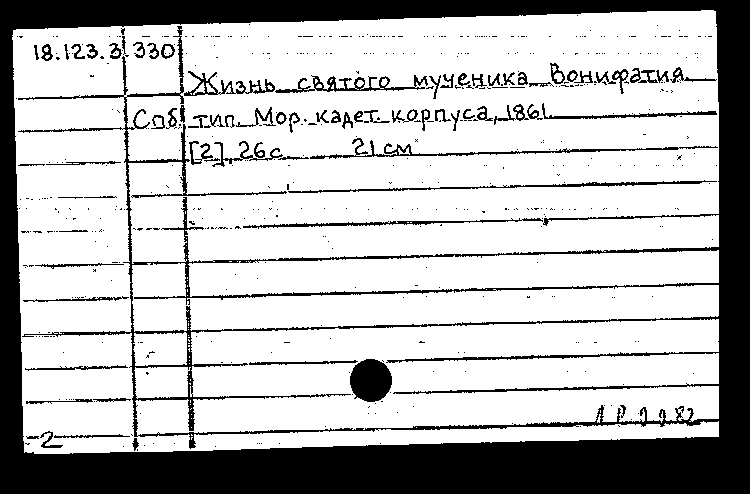 18.123.3 330
Жизнь святого мученика Вонифатия.
Спб, тип. Мор. кадет. корпуса, 1861.
[2], 26 с. 21 см
2